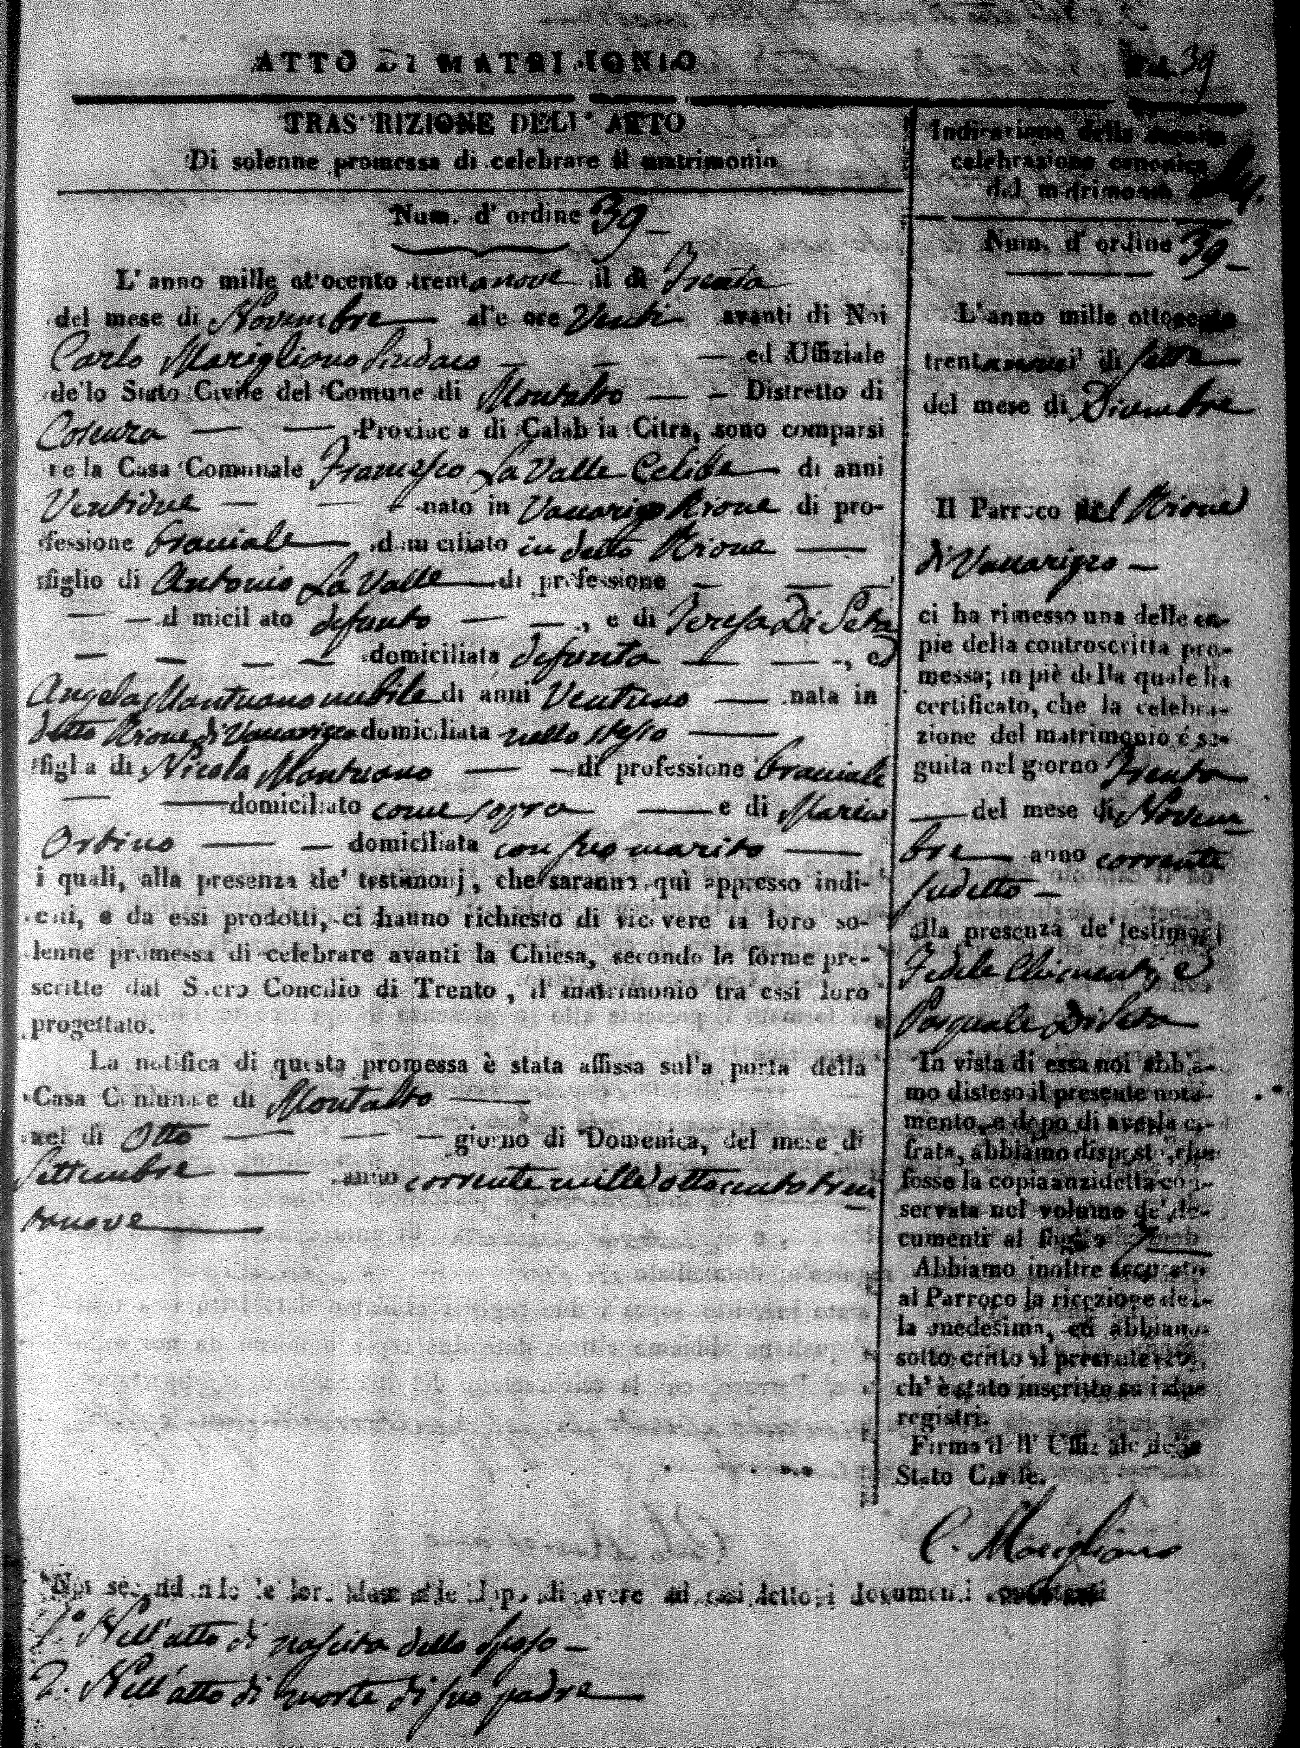 ATTO DI MATRIMONIO
39
TRASCRIZIONE DELL' ATTO
Di solenne promessa di celebrare il matrimonio
Num. d' ordine 39
L' anno mille ottocento trentanove il dì Trenta
del mese di Novembre alle ore Venti avanti di Noi
Carlo Marigliano Sindaco ed Uffiziale
dello Stato Civile del Comune di Montalto Distretto di
Cosenza Provincia di Calabria Citra, sono comparsi
nella Casa Comunale Francesco La Valle Celibe di anni
Ventidue nato in Vaccarizzo Rione di pro-
fessione bracciale domiciliato in detto Rione
figlio di Antonio La Valle di professione
domiciliato defunto , e di Teresa Di Seta
domiciliata defunta , ed
Angela Mantuano nubile di anni Ventuno nata in
detto Rione di Vaccarizzo domiciliata nello stesso
figlia di Nicola Mantuano di professione bracciale
domiciliato come sopra e di Maria
Ortino domiciliata con suo marito
i quali, alla presenza de' testimonj, che saranno quì appresso indi-
cati, e da essi prodotti, ci hanno richiesto di ricevere la loro so-
lenne promessa di celebrare avanti la Chiesa, secondo le forme pre-
scritte dal Sacro Concilio di Trento, il matrimonio tra essi loro
progettato.
La notifica di questa promessa è stata affissa sulla porta della
Casa Comunale di Montalto
nel di Otto giorno di Domenica, del mese di
Settembre anno corrente mille ottocentotren
tanove
Indicazione della seguita
celebrazione canonica
del matrimonio
Num. d' ordine 39
L'anno mille ottocento
trentanove il di Sette
del mese di Dicembre
Il Parroco del Rione
di Vaccarizzo
ci ha rimesso una delle co-
pie della controscritta pro-
messa; in piè della quale ha
certificato, che la celebra-
zione del matrimonio é se-
guita nel giorno Trenta
del mese di Novem
bre anno corrente
sudetto
alla presenza de' testimonj
Fedele e
Pasquale Di Seta
In vista di essa noi abbia-
mo disteso il presente nota-
mento, e dopo di averla ci-
frata, abbiamo disposto, che
fosse la copia anzidetta con-
servata nel volume de' do-
cumenti al foglio 7
Abbiamo inoltre accusato
al Parroco la ricezione del-
la medesima, ed abbiamo
sottoscritto il presente atto,
ch' è stato inscritto su i due
registri.
Firma dell' Uffiziale dello
Stato Civile.
C. Marigliano
Noi secondando le loro domande dopo di avere ad essi letto i documenti consistenti
1.° Nell'atto di nascita dello sposo
2. Nell'atto di morte di suo padre